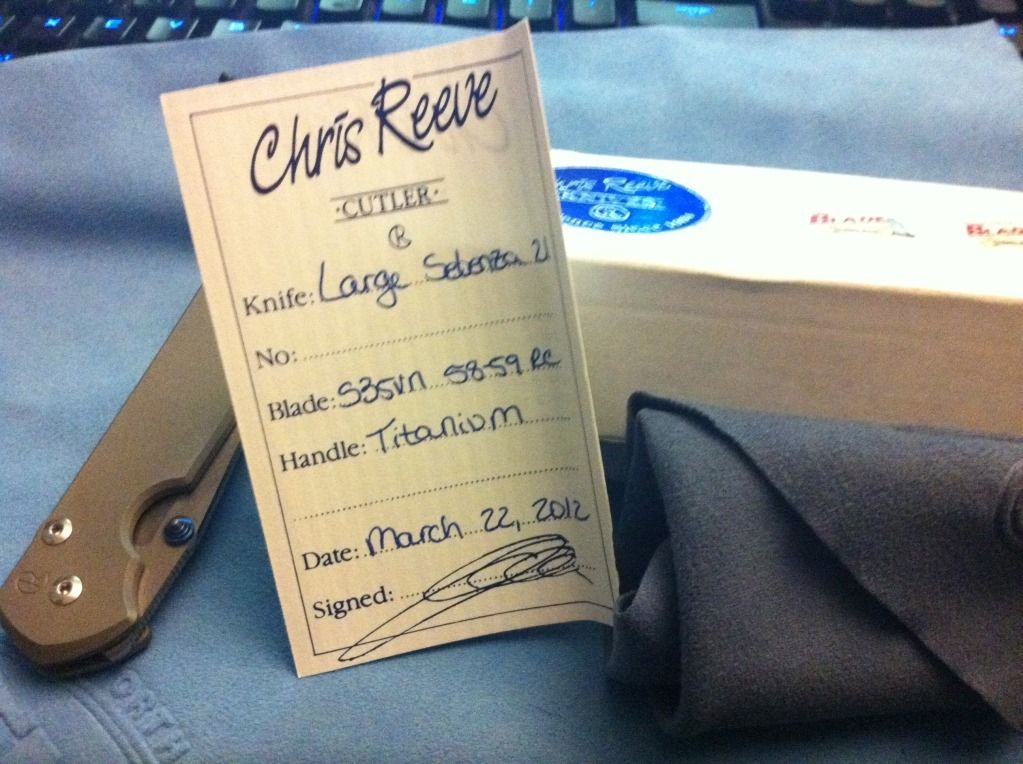 Chris Reeve
·CUTLER·
R
Knife: Large Sebenza 21
No:
Blade: S35VN 58-59 RC
Handle: Titanium
Date: March 22, 2012
Signed:
CHRIS REEVE
BLADE
BLAD
ORTH